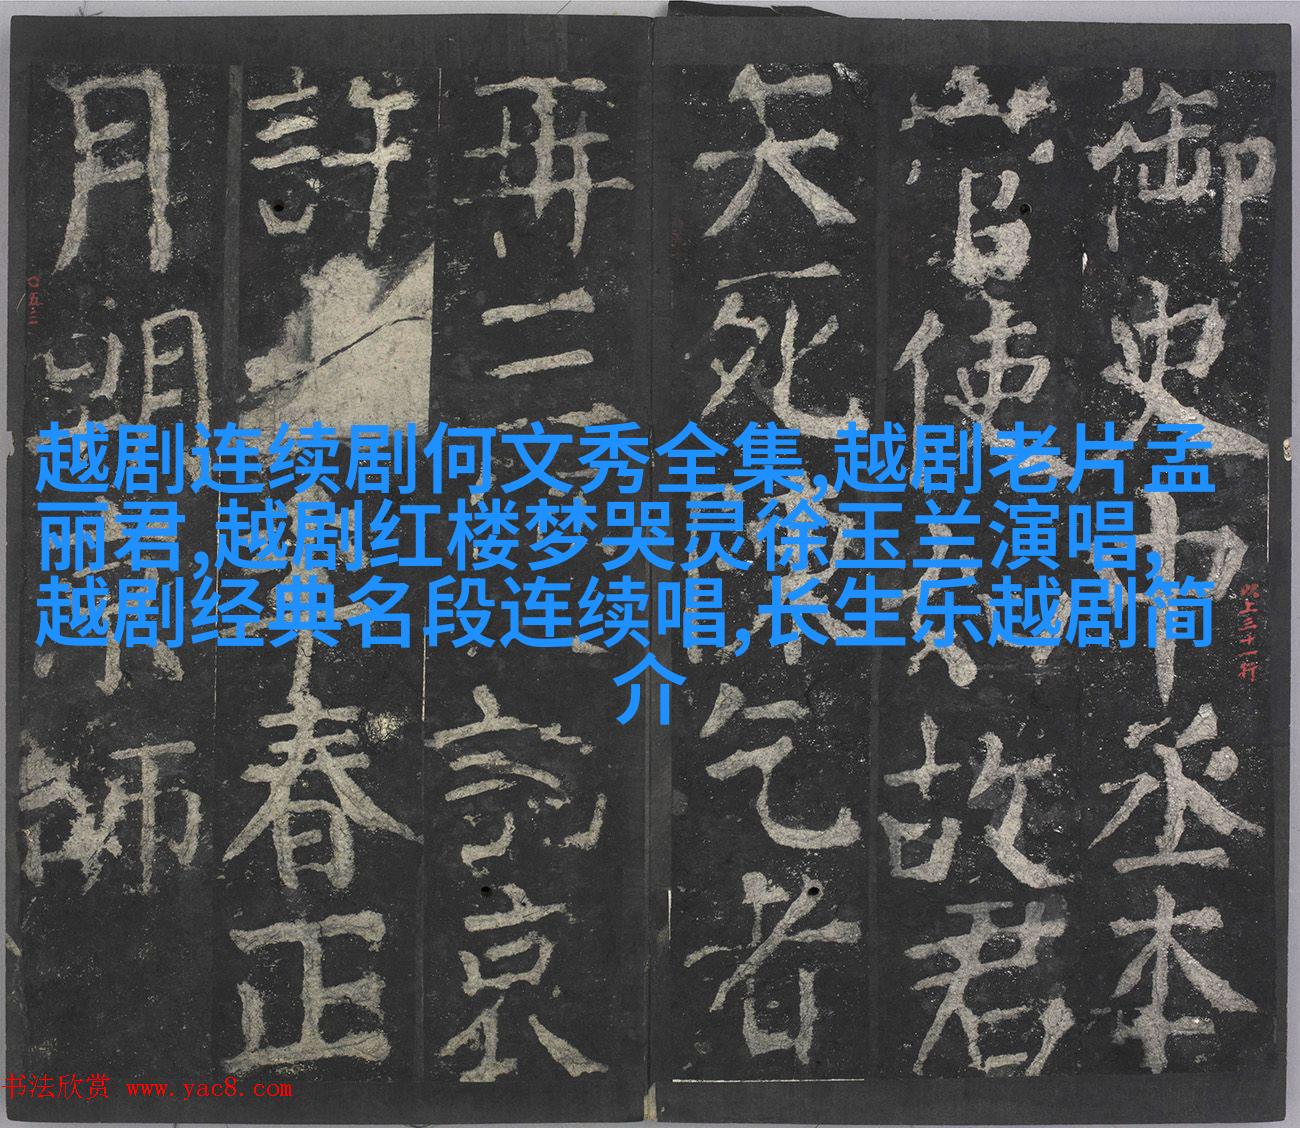 越剧连续剧何文秀全集,越剧老片孟
丽君,越剧红楼梦哭灵徐玉兰演唱,
越剧经典名段连续唱,长生乐越剧简
介
御史中丞本
使故君
死乞者
再京
許春正
月明師
此上三十一行
〇五三
书法欣赏 www.yac8.com